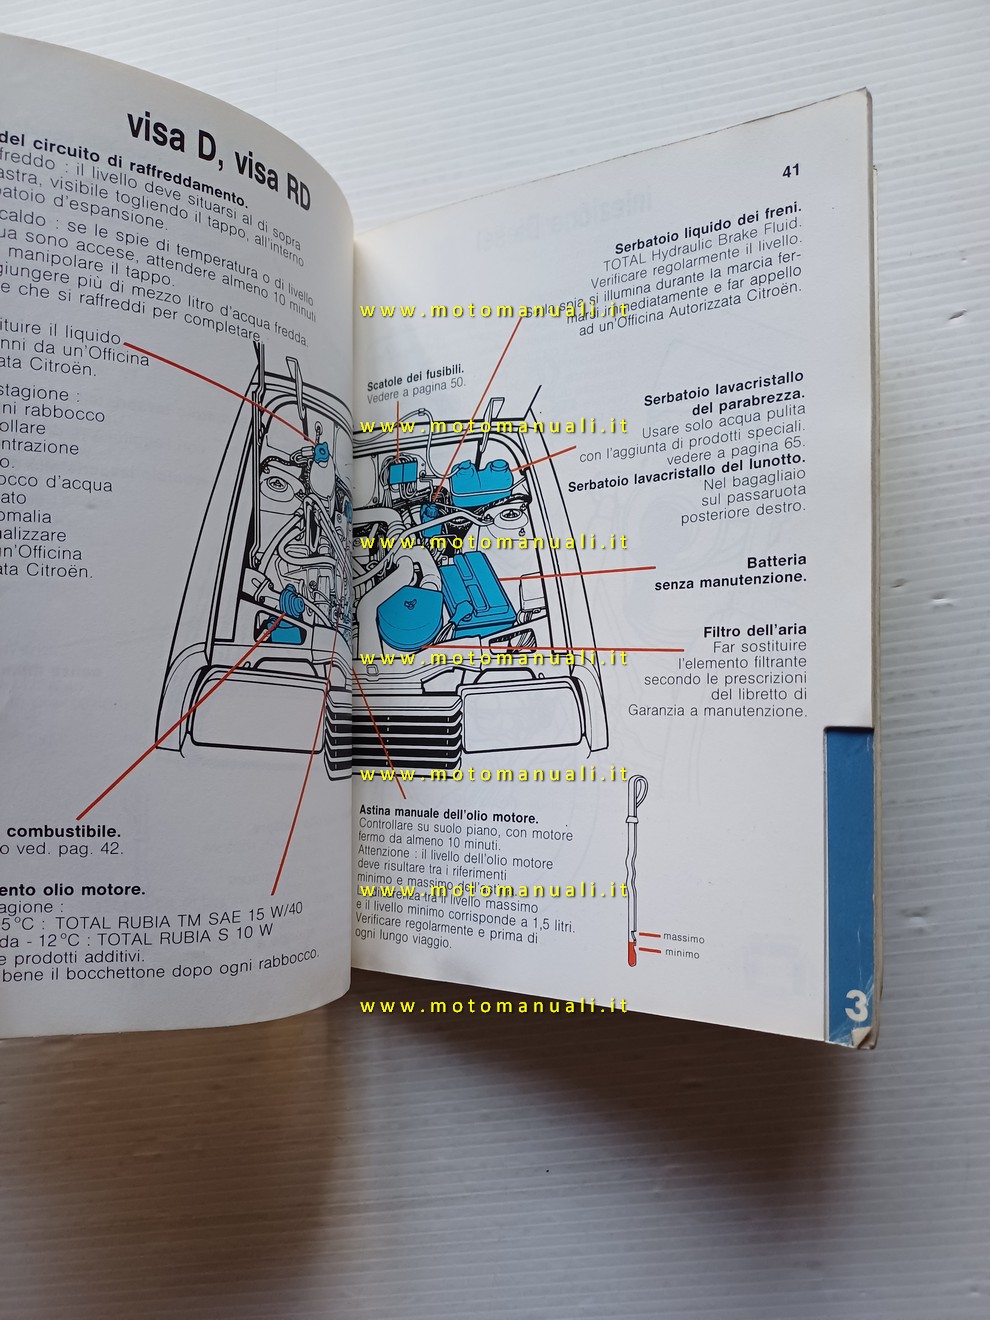 visa D, visa RD
del circuito di raffreddamento.
freddo : il livello deve situarsi al di sopra
astra, visibile togliendo il tappo, all'interno
batoio d'espansione.
caldo : se le spie di temperatura o di livello
ua sono accese, attendere almeno 10 minuti
manipolare il tappo.
giungere più di mezzo litro d'acqua fredda.
e che si raffreddi per completare.
ituire il liquido
nni da un'Officina
ata Citroën.
stagione :
ni rabbocco
ollare
entrazione
o.
occo d'acqua
ato
omalia
nalizzare
un'Officina
ata Citroën.
combustibile.
o ved. pag. 42.
ento olio motore.
tagione :
5 °C : TOTAL RUBIA TM SAE 15 W/40
da - 12 °C : TOTAL RUBIA S 10 W
e prodotti additivi.
bene il bocchettone dopo ogni rabbocco.
41
Serbatoio liquido dei freni.
TOTAL Hydraulic Brake Fluid.
Verificare regolarmente il livello.
se la spia si illumina durante la marcia fer-
marsi immediatamente e far appello
ad un'Officina Autorizzata Citroën.
Scatole dei fusibili.
Vedere a pagina 50.
Serbatoio lavacristallo
del parabrezza.
Usare solo acqua pulita
con l'aggiunta di prodotti speciali.
vedere a pagina 65.
Serbatoio lavacristallo del lunotto.
Nel bagagliaio
sul passaruota
posteriore destro.
Batteria
senza manutenzione.
Filtro dell'aria
Far sostituire
l'elemento filtrante
secondo le prescrizioni
del libretto di
Garanzia a manutenzione.
Astina manuale dell'olio motore.
Controllare su suolo piano, con motore
fermo da almeno 10 minuti.
Attenzione : il livello dell'olio motore
deve risultare tra i riferimenti
minimo e massimo dell'astina.
La differenza tra il livello massimo
e il livello minimo corrisponde a 1,5 litri.
Verificare regolarmente e prima di
ogni lungo viaggio.
massimo
minimo
3
www.motomanuali.it
www.motomanuali.it
www.motomanuali.it
www.motomanuali.it
www.motomanuali.it
www.motomanuali.it
www.motomanuali.it